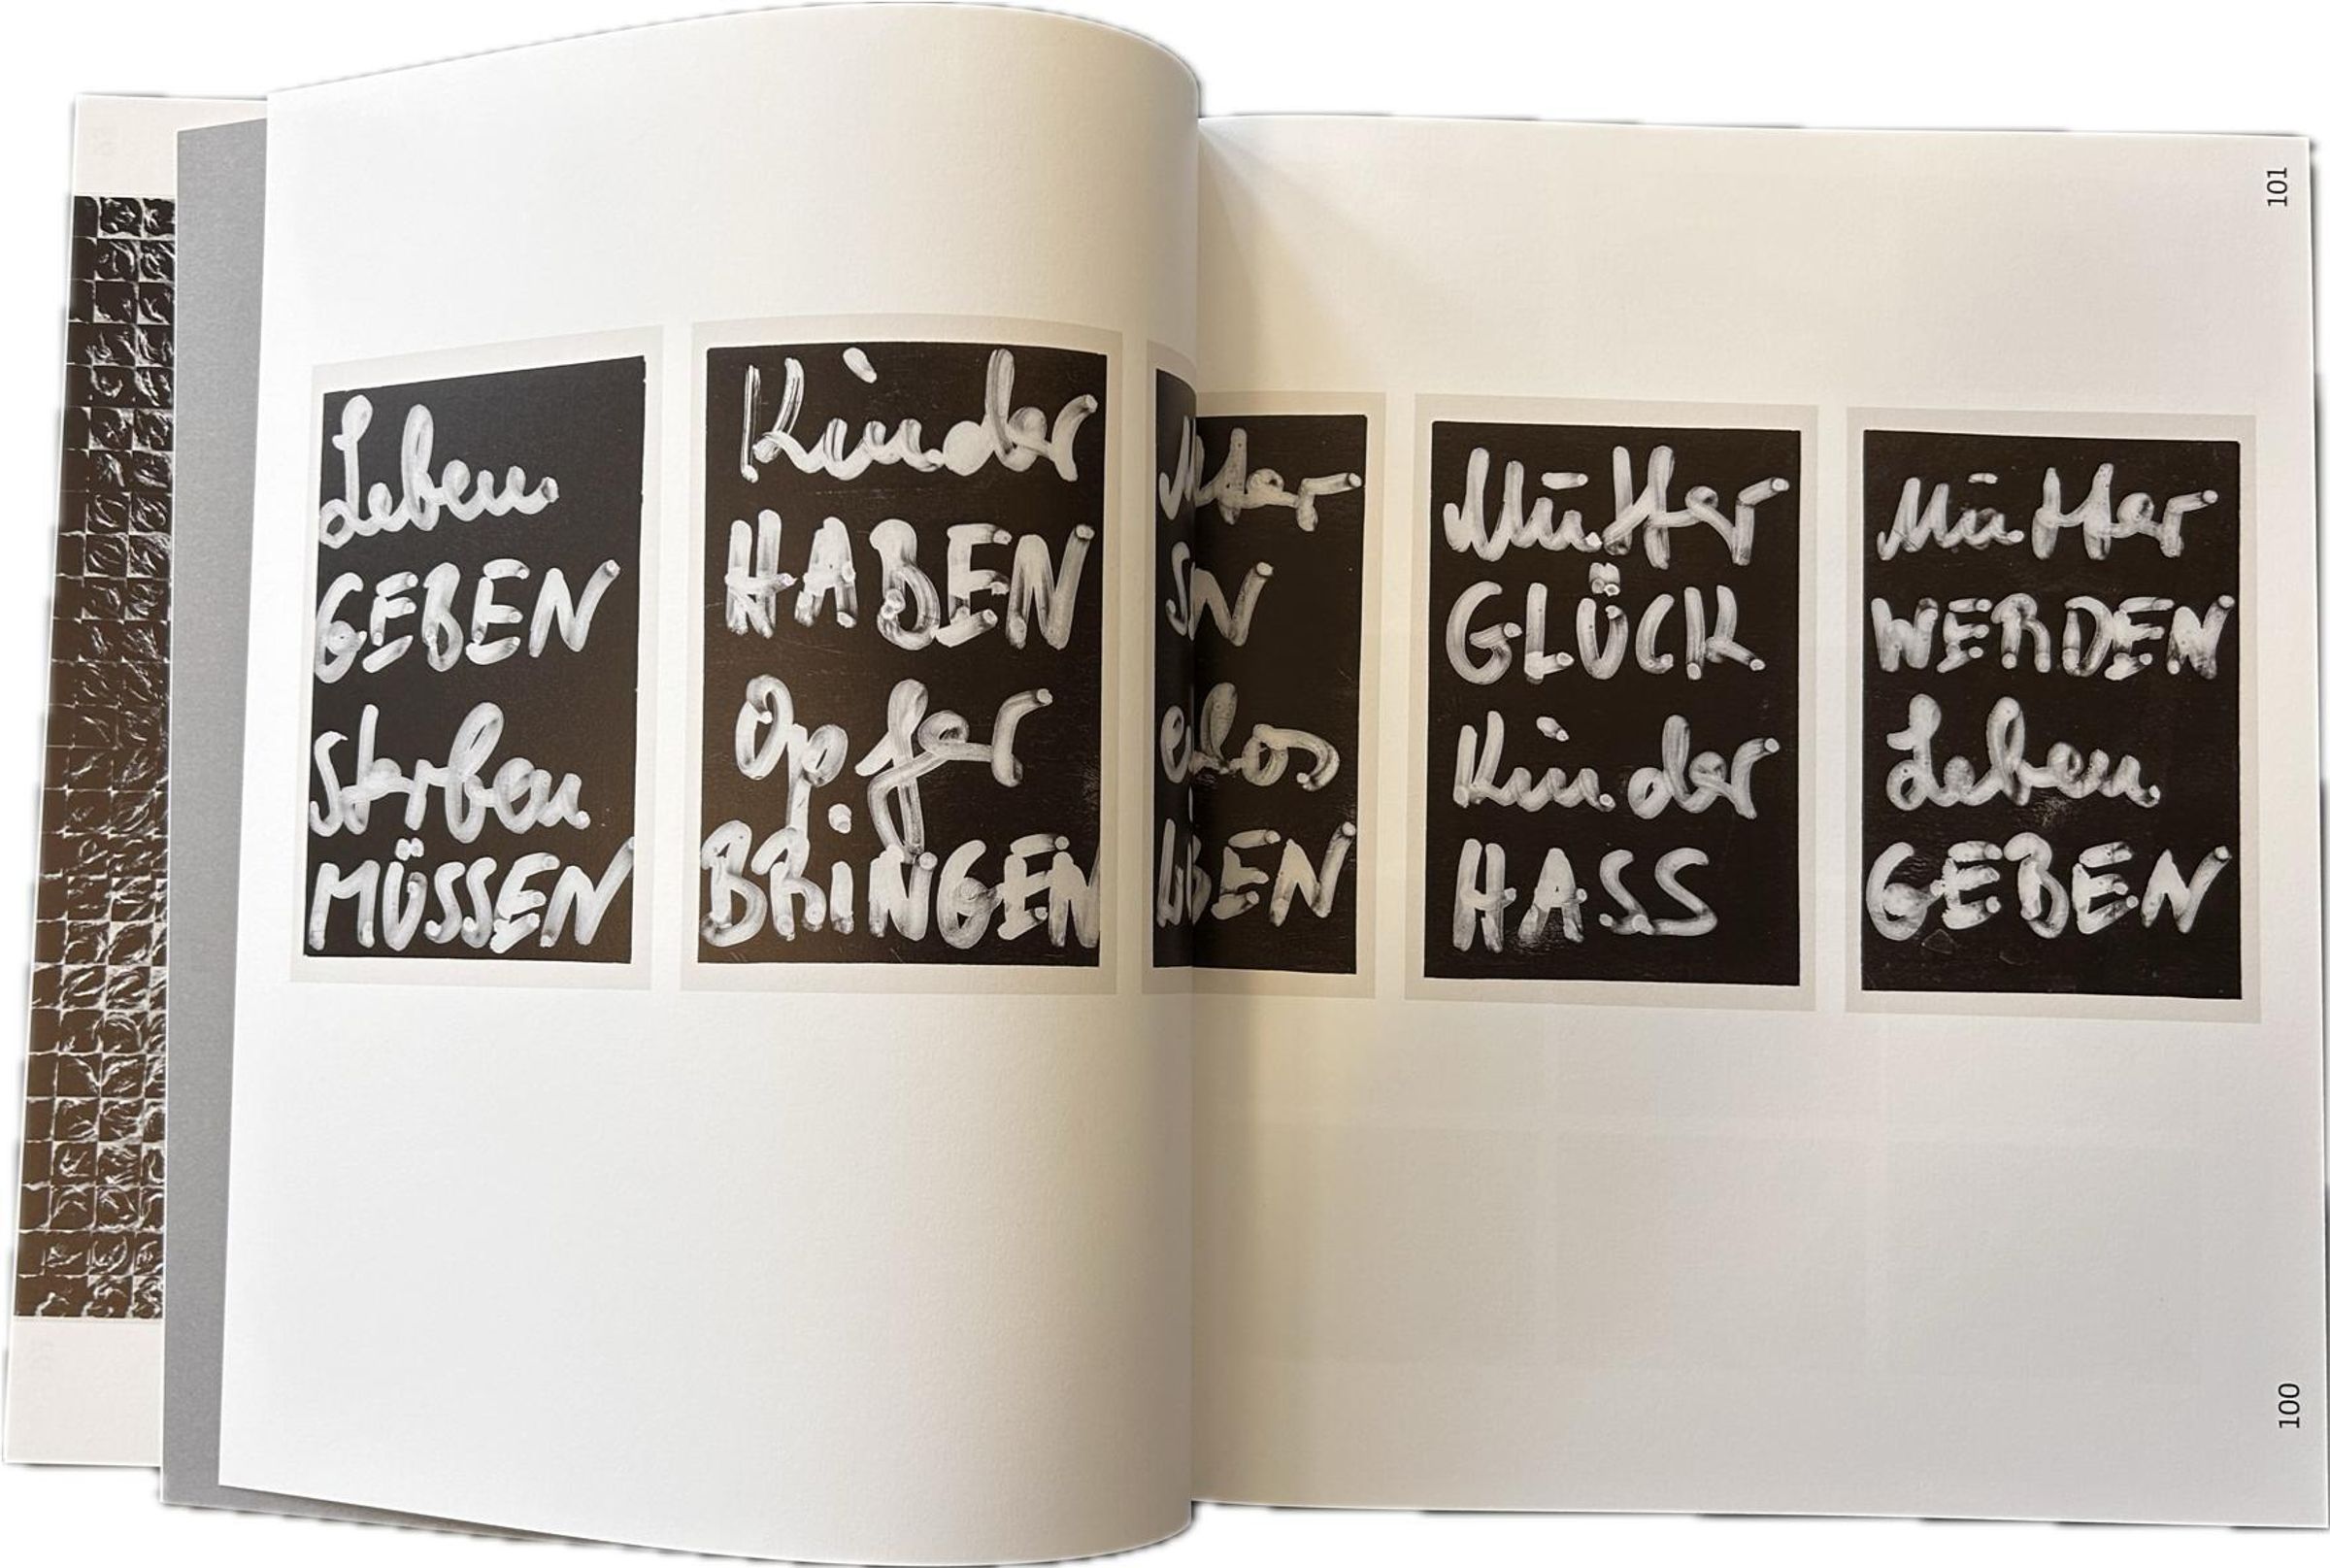 Leben
GEBEN
Sterben
MÜSSEN
Kinder
HABEN
Opfer
BRiNGEN
Mütter
GLÜCK
Kinder
HASS
Mütter
WERDEN
Leben
GEBEN
101
100